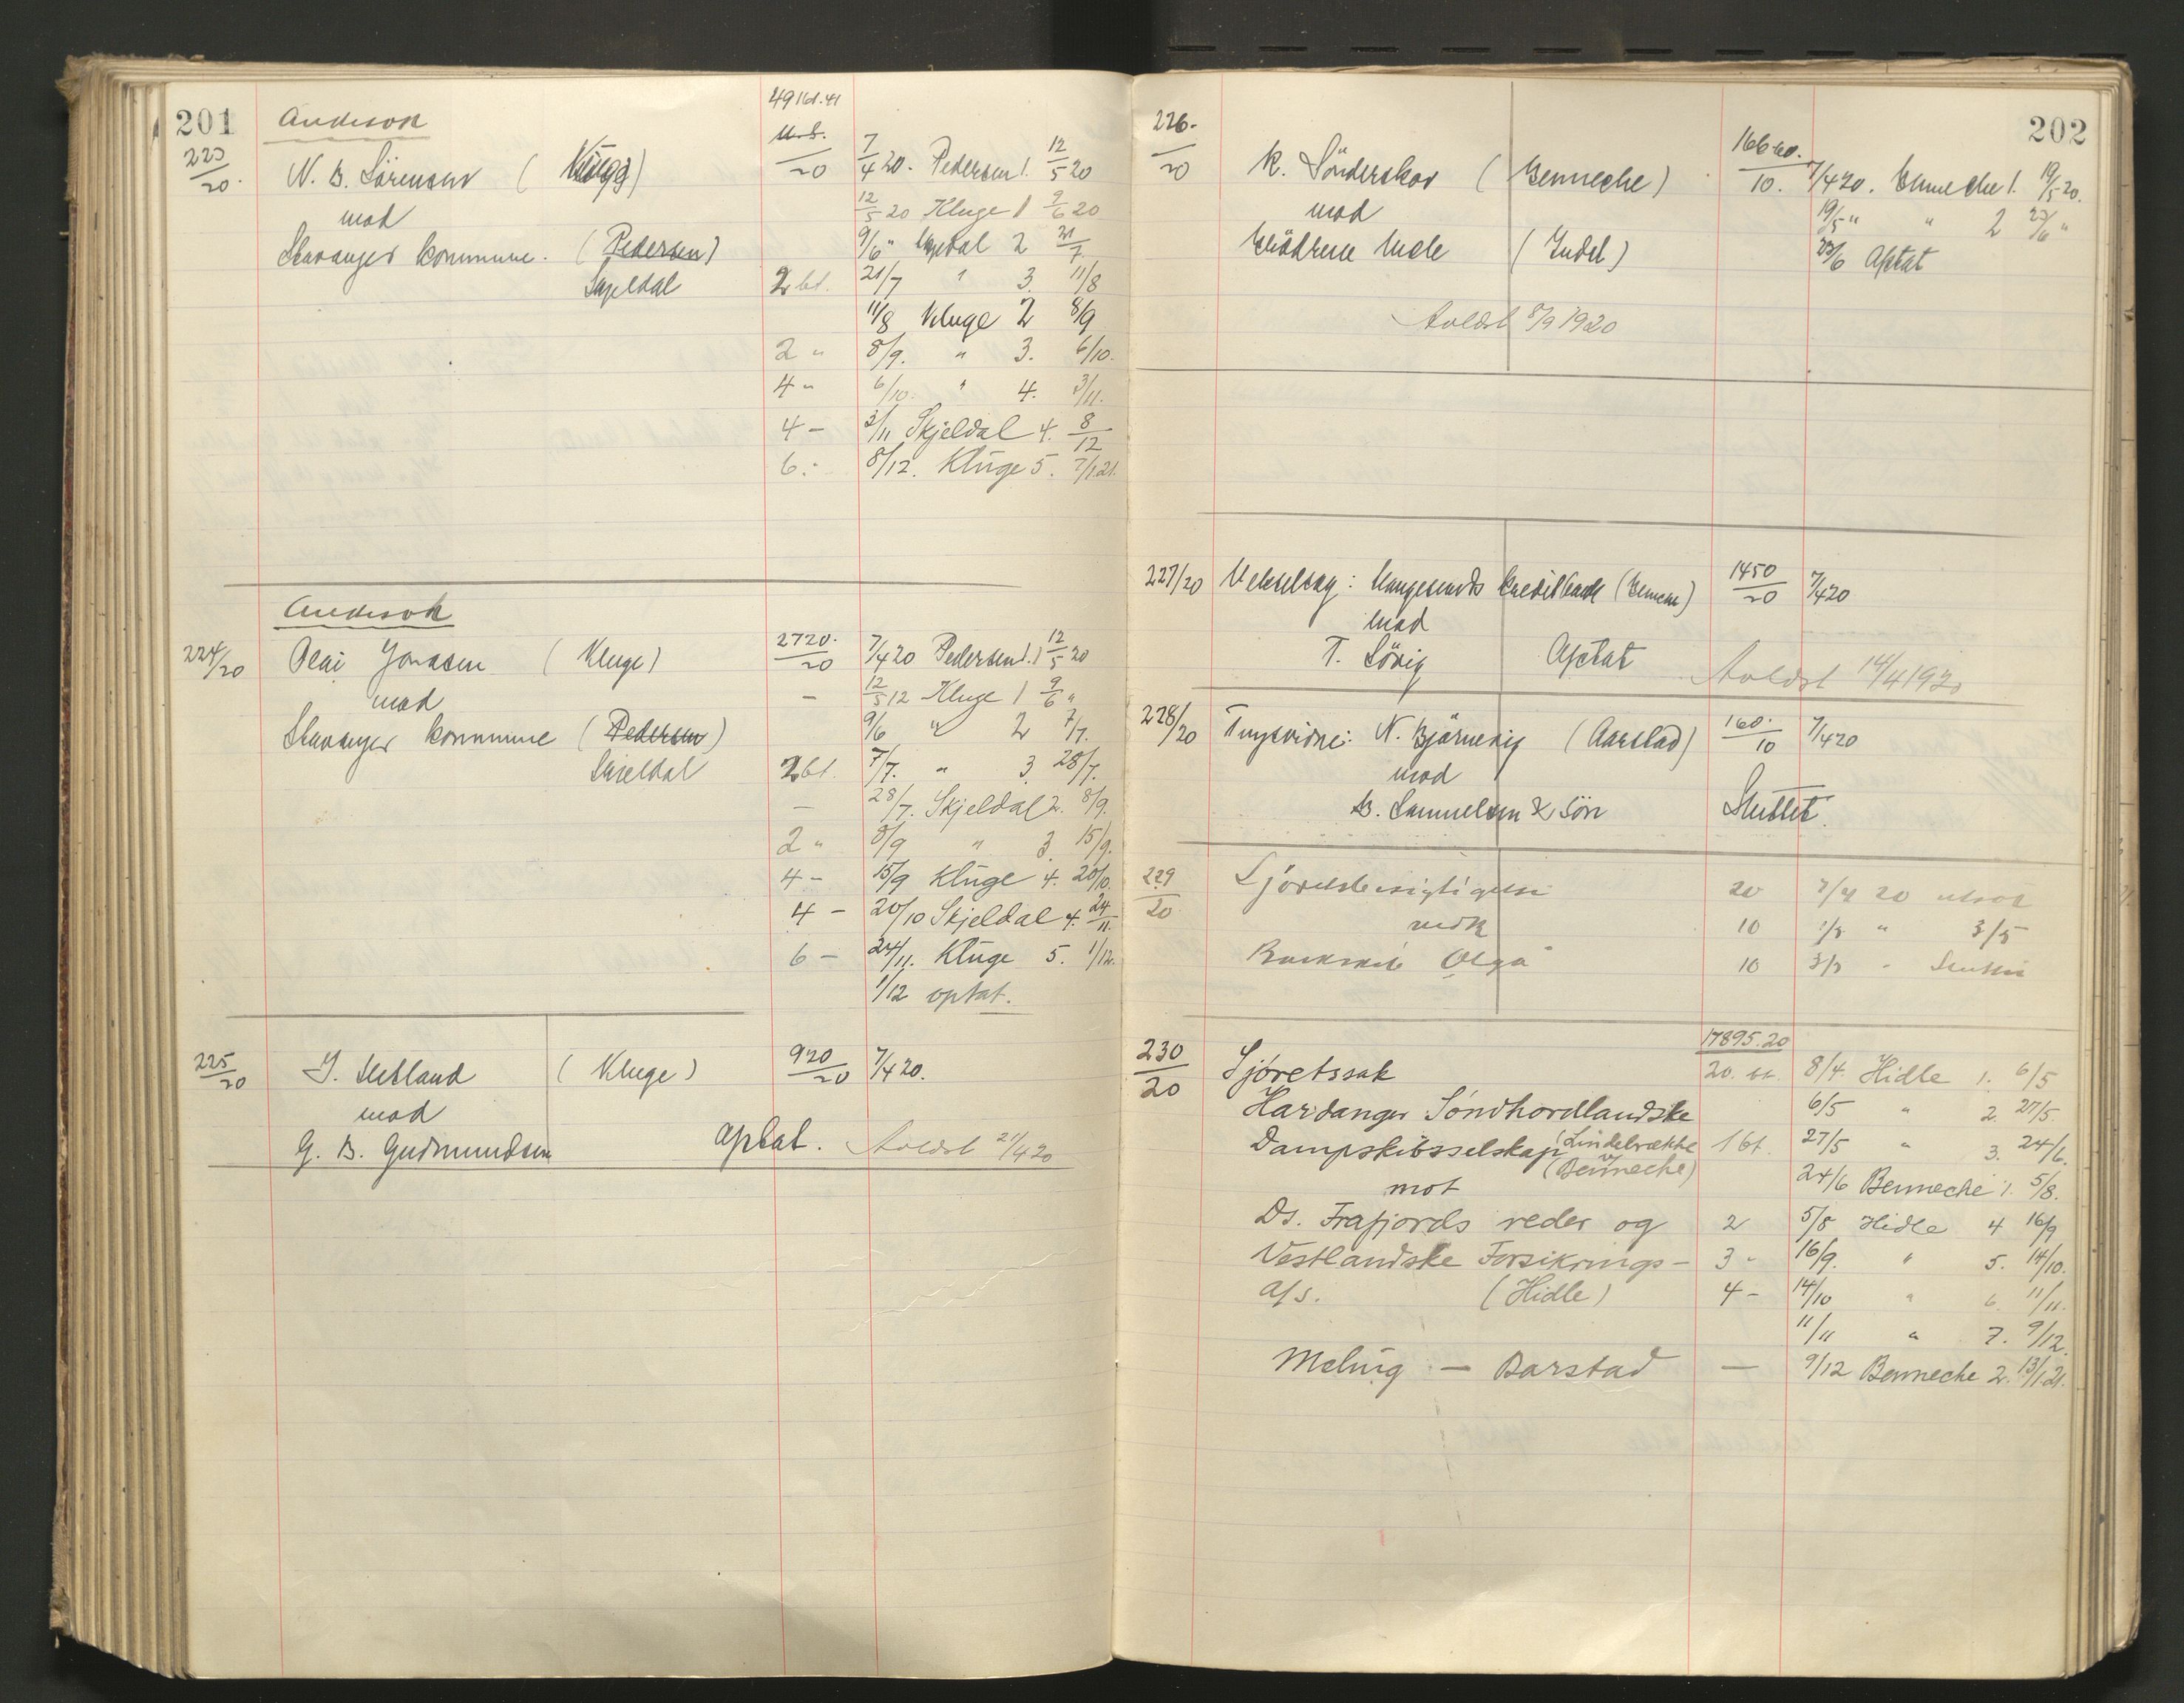 201
Anderson
4916.41
223/20. N. B. Sörensen (Kluge) /20 7/4 20. Pedersen 1. 12/5 20
mod 12/5 20 Kluge 1 9/6 20
Stavanger kommune. (Pedersen) 9/6 " Skjeldal 2 21/7
Skjeldal 2 bl. 21/7 " 3. 11/8
11/8 Kluge 2 8/9
2 " 8/9. " 3. 6/10.
4 " 6/10. " 4. 3/11.
4 - 3/11 Skjeldal 4. 8/12
6 - 8/12. Kluge 5. 7/1.21.
Anderson
224/20 Olai Jonasen (Kluge) 2720./20 7/4 20 Pedersen 1. 12/5 20
mod - 12/5 12 Kluge 1 9/6 "
Stavanger kommune (Pedersen) 9/6 " 2 7/7.
Skjeldal 2 bl. 7/7. " 3. 28/7.
- 28/7. Skjeldal 2. 8/9.
2 " 8/9 " 3 15/9.
4 - 15/9 Kluge 4. 20/10.
4 - 20/10 Skjeldal 4. 24/11.
6 - 24/11. Kluge 5. 1/12.
1/12 optat.
225/20 J. Hetland (Kluge) 920/20 7/4 20.
mod
G. B. Gudmundsen optat. Avldst 21/4 20
202
226./20 K. Sönderskov (Benneche) 166 60./10. 7/4 20. Benneche 1. 19/5 20.
mod 19/5 " " 2 23/6 "
Brödrene (Indal) 23/6 Optat
Avldst 8/9 1920
227/20 Vekselsag: Haugesunds Kreditbank (Benneche) 1450/20 7/4 20
mod
T. Sörig Optat Avldst 14/4 1920
228/20 Tingsvidne: N. Bjørnevig (Aarstad) 160./10 7/4 20
mod
B. Samuelsen & Sön Sluttet.
229/20 Sjörettsbesigtigelse 20 7/4 20 utsat
vedk 10 " 3/5
Barkskib Olga 10 " Sluttet
17895.20
230/20 Sjøretssak 20. bl. 8/4. Hidle 1. 6/5
Hardanger Søndhordlandske 6/5 " 2 27/5.
Dampskibsselskap (Lindebrække 1 bl. 27/5 " 3. 24/6.
v/ (Benneche)
mot 24/6 Benneche 1. 5/8.
Ds. Frafjords reder og 2 5/8 Hidle 4 16/9
Vestlandske Forsikrings- 3 - 16/9. " 5. 14/10.
A/s. (Hidle) 4 - 14/10 " 6. 11/11.
11/11 " 7. 9/12.
Meling - Barstad - 9/12 Benneche 2. 13/1.21.